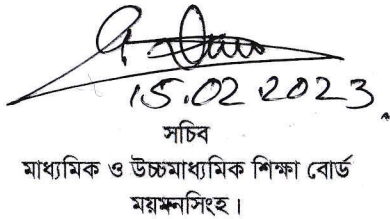 15.02.2023
সচিব
মাধ্যমিক ও উচ্চমাধ্যমিক শিক্ষা বোর্ড
ময়মনসিংহ।